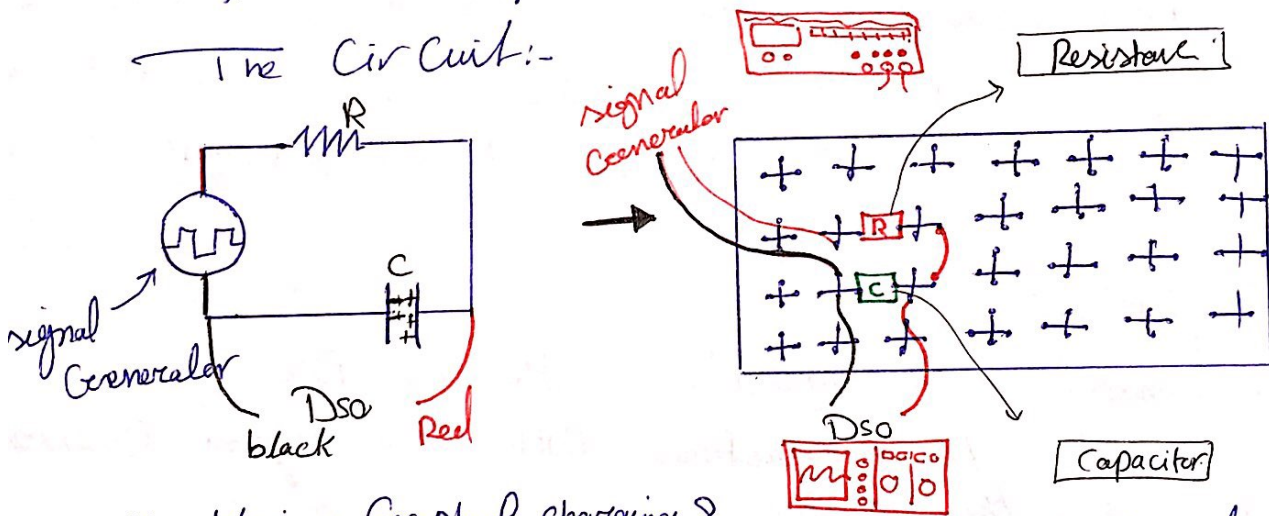 The CirCuit:-
R
signal
Generator
C
DSO
black
Red
signal
Generator
Resistance
R
C
DSO
Capacitor